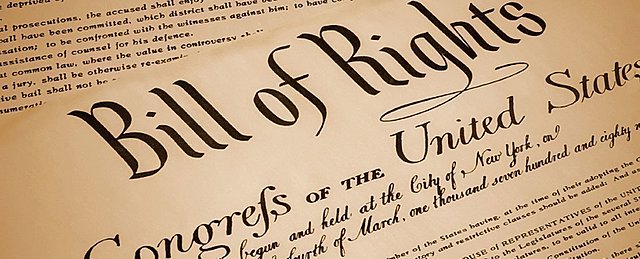 rosecutions, the accused shall enjoy
have been committed, which district shall have be
sation; to be confronted with the witnesses against him; to have com
ssistance of counsel for his defence.
at common law, where the value in controversy
a jury, shall be otherwise re-exam
ive bail shall not be
numerati
Bill of Rights
Congreſs OF THE United States
begun and held at the City of New York, on
fourth of March, one thousand seven hundred and eighty n
mber of the States having, at the time of their adopting the
atory and restrictive clauses should be added: And
HOUSE of REPRESENTATIVES of the UN
to the Legislatures of the several S
to be valid to all
Constitution of the